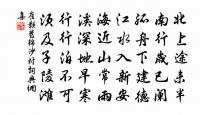 北上途未半
南行歲已闌
孤舟下建德
江水入新安
海近山常雨
溪深地早寒
行行泊不可
須及子陵灘
崔顥發錦沙村詞典網
集